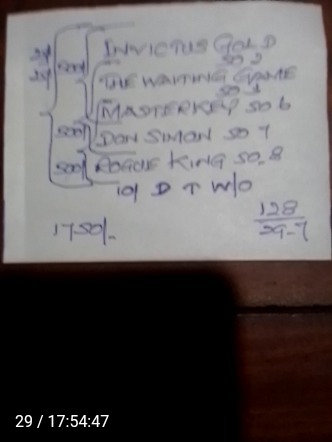 INVICTUS GOLD
SO 2
THE WAITING GAME
MASTERKEY SO 6
500/- DON SIMON SO 7
500/- ROGUE KING SO-8
10/ D T W/O
1750/-
128
29-7
29 / 17:54:47